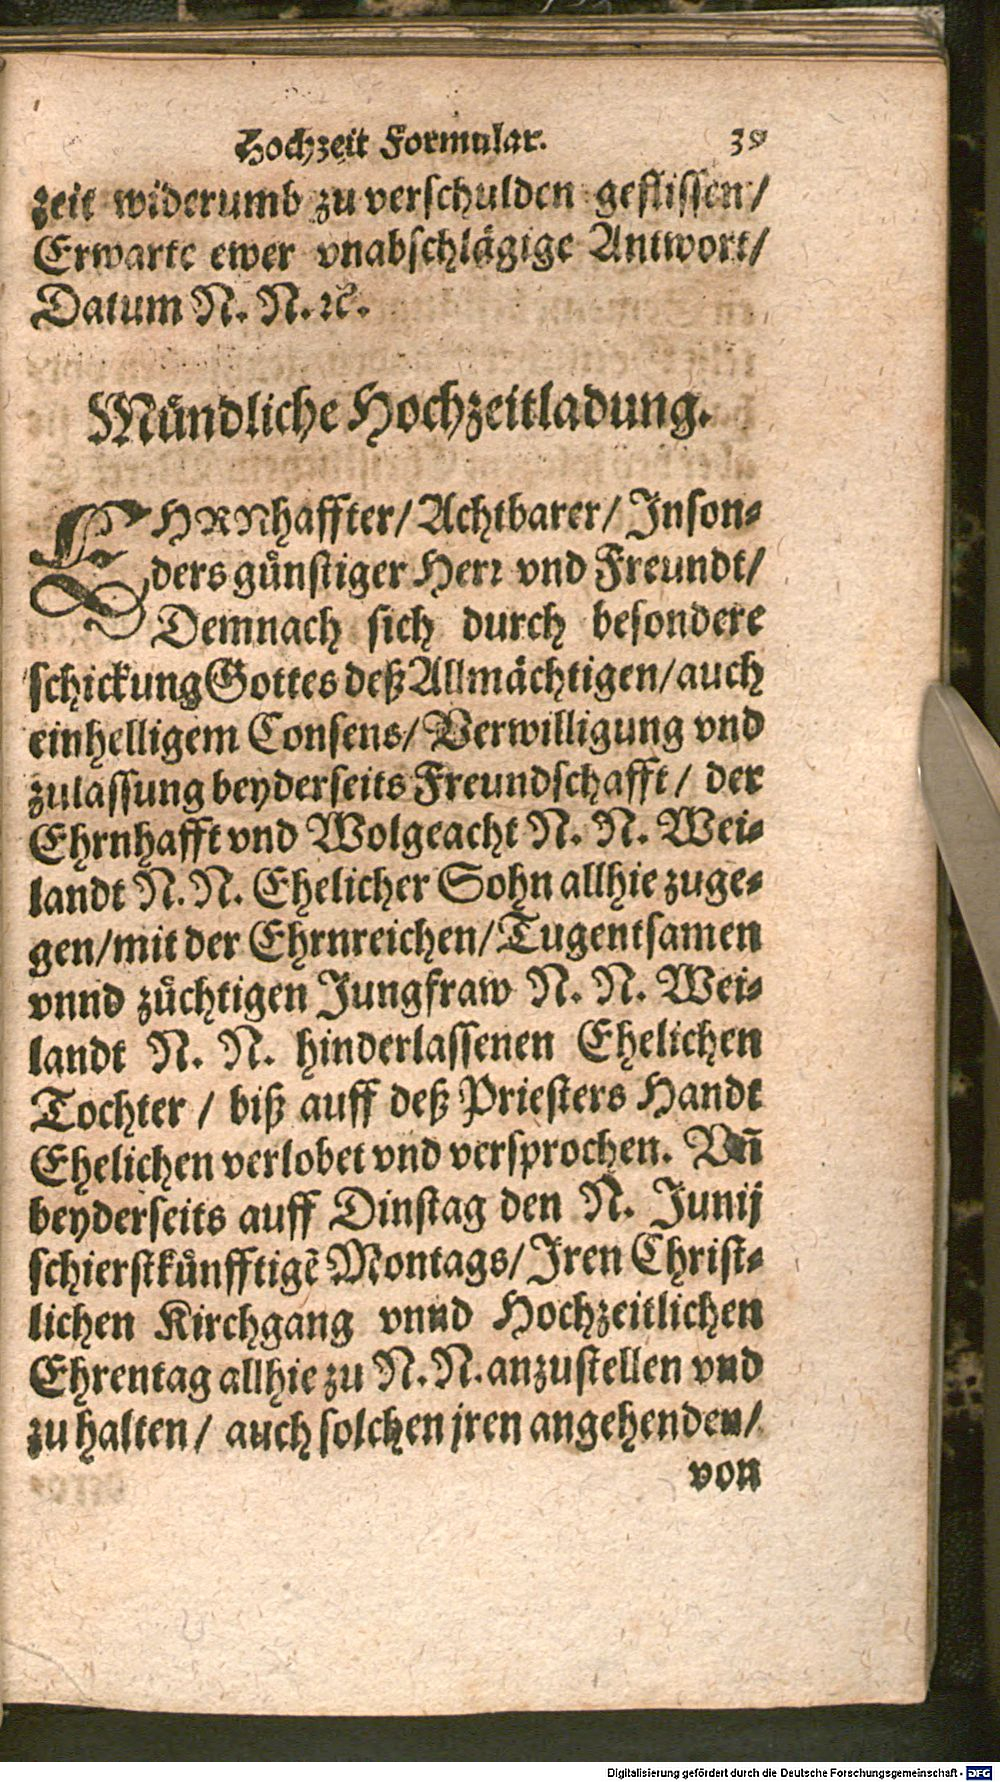 Hochzeit Formular. 39
zeit widerumb zu verschulden geflissen /
Erwarte ewer vnabschlägige Antwort /
Datum N. N. ꝛc.
Mündliche Hochzeitladung.
EHRNhaffter / Achtbarer / Inson-
ders günstiger Herr vnd Freundt /
Demnach sich durch besondere
schickung Gottes deß Allmächtigen / auch
einhelligem Consens / Verwilligung vnd
zulassung beyderseits Freundschafft / der
Ehrnhafft vnd Wolgeacht N. N. Wei-
landt N. N. Ehelicher Sohn allhie zuge-
gen / mit der Ehrnreichen / Tugentsamen
vnnd züchtigen Jungfraw N. N. Wei-
landt N. N. hinderlassenen Ehelichen
Tochter / biß auff deß Priesters Handt
Ehelichen verlobet vnd versprochen. Vñ
beyderseits auff Dinstag den N. Junij
schierstkünfftigẽ Montags / Iren Christ-
lichen Kirchgang vnnd Hochzeitlichen
Ehrentag allhie zu N. N. anzustellen vnd
zu halten / auch solchen jren angehenden /
von
Digitalisierung gefördert durch die Deutsche Forschungsgemeinschaft - DFG